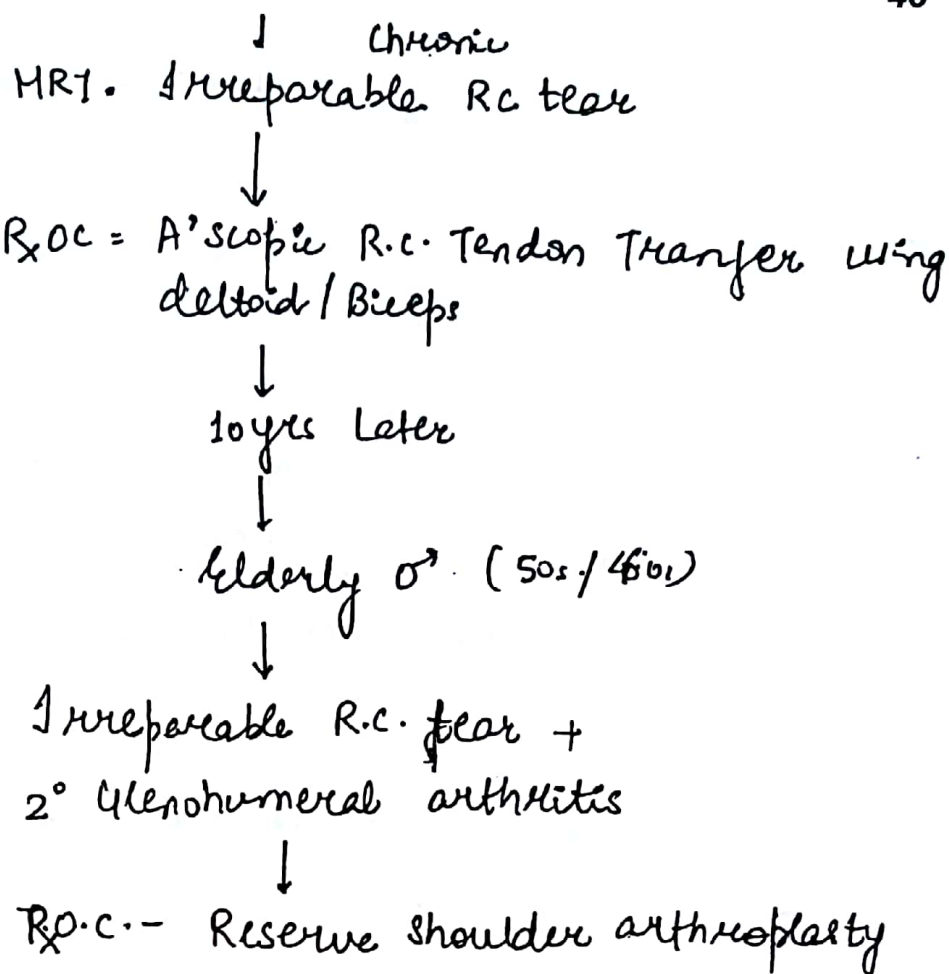 Chronic
MRI. Irreparable Rc tear
RxOC = A'scopic R.c. Tendon Tranfer using
deltoid / Biceps
10yrs Later
Elderly ♂. (50s /
Irreparable R.C. tear +
2° Glenohumeral arthritis
RxO.C.- Reserve shoulder arthroplasty